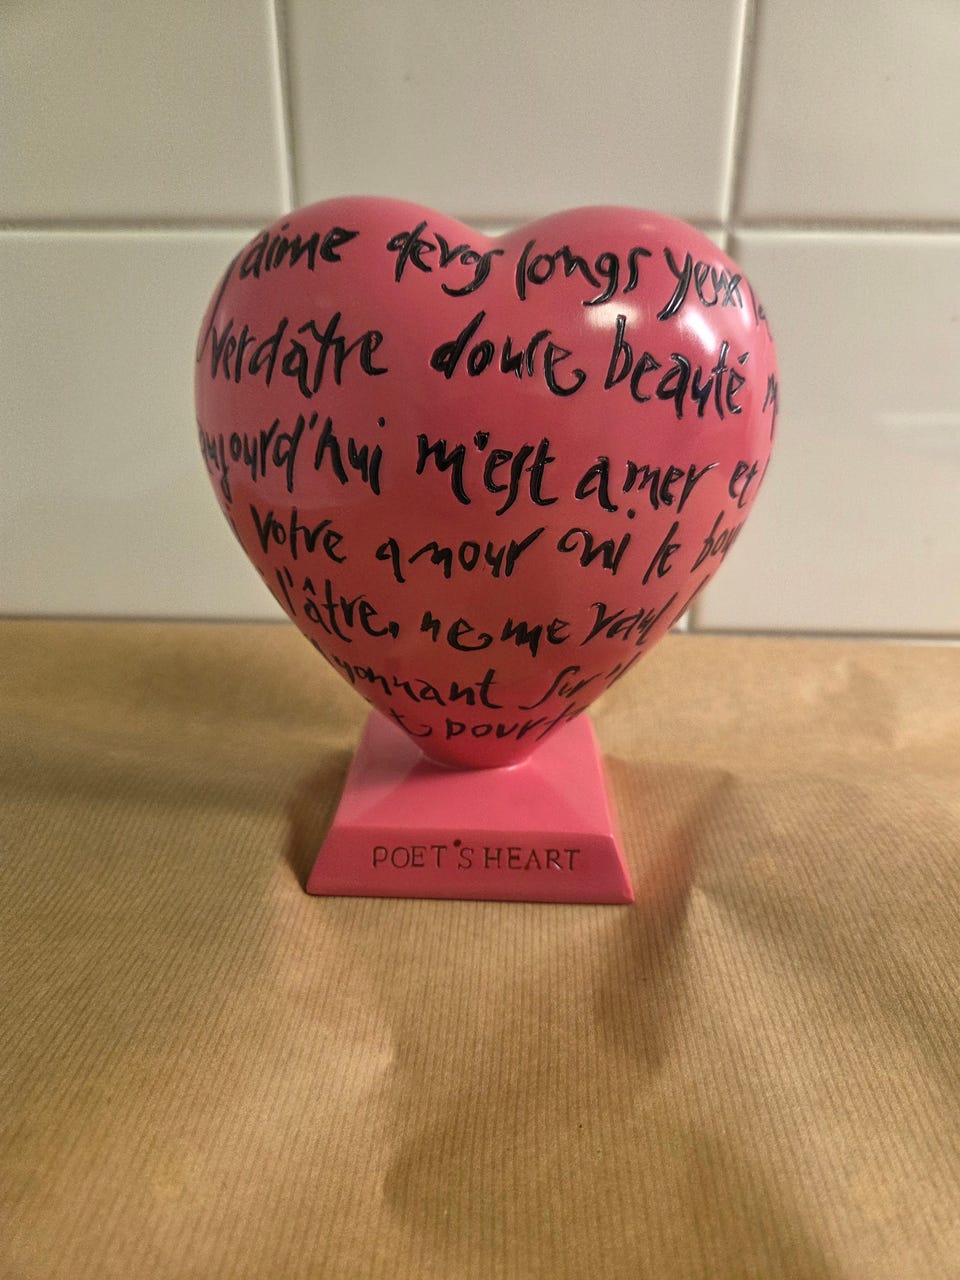 j'aime de vos longs yeux la
verdâtre douce beauté
aujourd'hui m'est amer et
votre amour ni le bou
l'âtre, ne me vaut
yonnant sur
t pourt
POET'S HEART